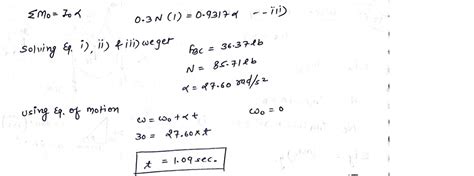 ΣMo = Io α    0.3 N (1) = 0.9317 α    -- iii)
Solving Eq. i), ii) & iii) we get
FBC = 36.37 lb
N = 85.71 lb
α = 27.60 rad/s²
using Eq. of motion
ω = ω₀ + αt    ω₀ = 0
30 = 27.60 × t
t = 1.09 sec.